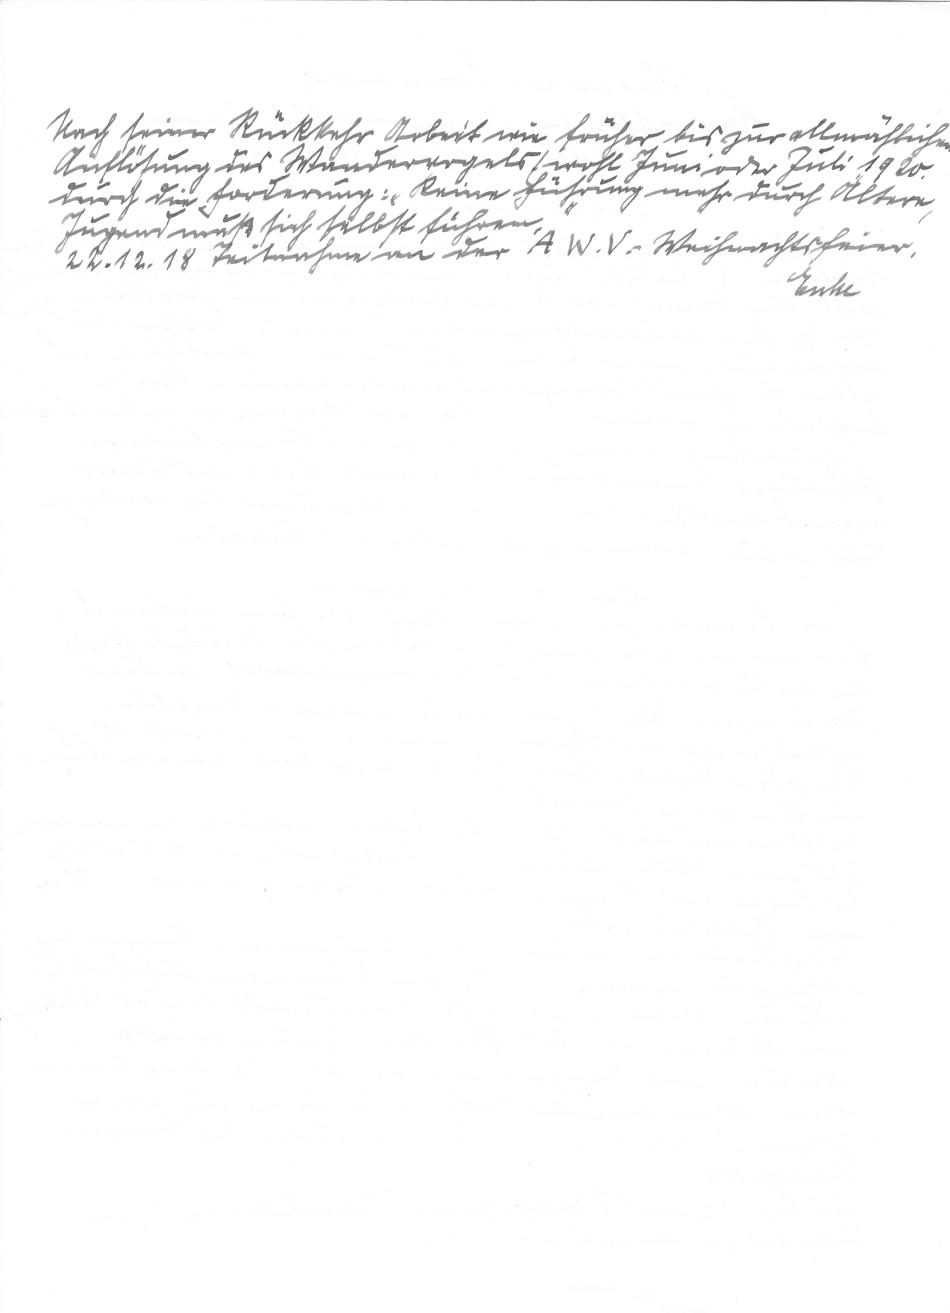 Nach seiner Rückkehr Arbeit wie früher bis zur allmählichen
Auflösung des Wandervogels (wohl Juni oder Juli 1920.
durch die Forderung: „Keine Führung mehr durch Ältere,
Jugend muß sich selbst führen."
22.12.18 Teilnahme an der A W.V.- Weihnachtsfeier.
Enke